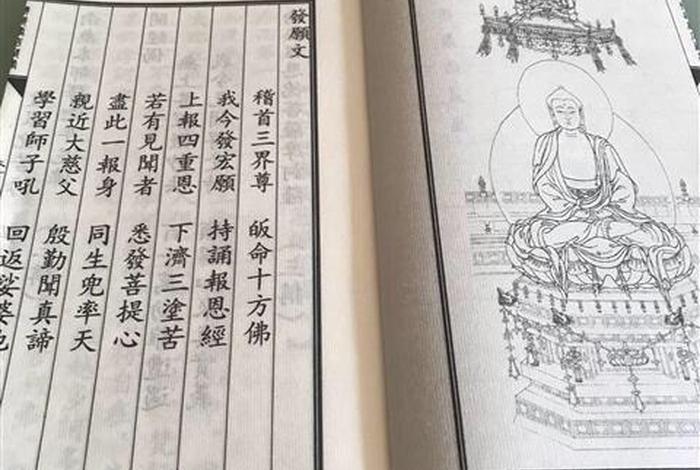 發願文
稽首三界尊 皈命十方佛
我今發宏願 持誦報恩經
上報四重恩 下濟三塗苦
若有見聞者 悉發菩提心
盡此一報身 同生兜率天
親近大慈父 殷勤聞真諦
學習師子吼 回返娑婆